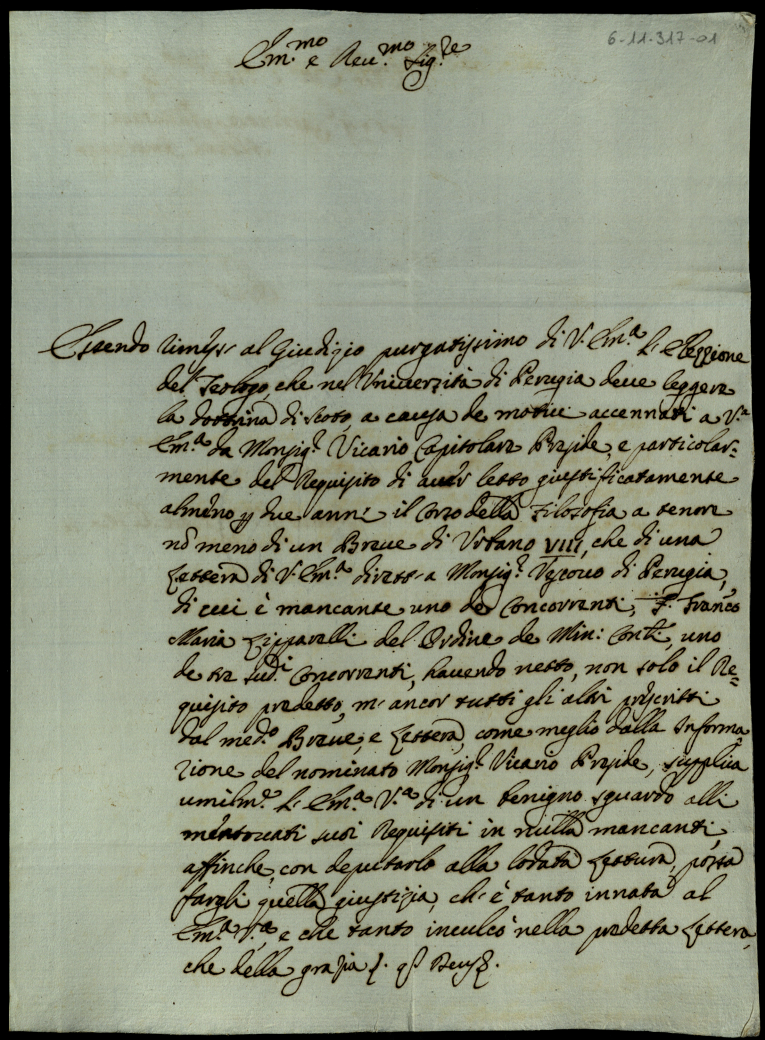 6-11-317-01
Em.mo e Reu.mo Sig.re
Essendo rimessa al Giudizio purgatissimo di V. Em.a l'Elezzione
del Teologo, che nel Università di Perugia deue leggere
la dottrina di Scoto, a causa de motiui accennati a V.a
Em.a da Monsig.r Vicario Capitolare Preside, e particolar=
mente del Requisito di auer letto giustificatamente
almeno due anni il Corso della Filosofia a tenore
nō meno di un Breue di Vrbano VIII, che di una
Lettera di V. Em.a diretta a Monsig.r Vescouo di Perugia,
di cui è mancante uno de Concorrenti, F. Franco
Maria del Ordine de Min: Conti, uno
de tre sud.i Concorrenti, hauendo non solo il Re=
quisito predetto, ma ancor tutti gli altri prescritti
dal med.o Breue, e Lettera, come meglio dalla Informa=
zione del nominato Monsig.r Vicario Preside, supplica
umilm.e l'Em.a V.a di un benigno sguardo alli
suoi Requisiti in nulla mancanti,
affinche, con deputarlo alla lodata Lettura, possa
fargli quella giustizia, ch'è tanto innata al
Em.a V.a e che tanto inculcò nella predetta Lettera,
che della grazia